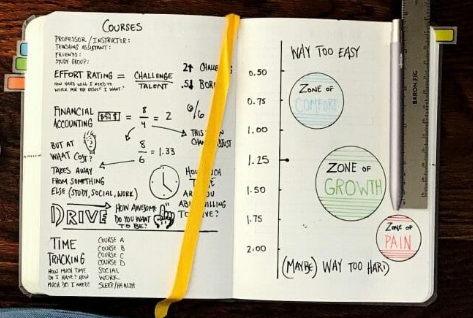 COURSES
PROFESSOR / INSTRUCTOR:
TEACHING ASSISTANT:
FRIENDS:
STUDY GROUP:
EFFORT RATING = CHALLENGE
TALENT
HOW HARD WILL I NEED TO
WORK FOR THE RESULT I WANT?
2↑
.5↓
FINANCIAL
ACCOUNTING
$$$ = 8
4 = 2
BUT AT
WHAT COST?
8
6 = 1.33
TAKES AWAY
FROM SOMETHING
ELSE (STUDY, SOCIAL, WORK)
DRIVE
HOW AWESOME
DO YOU WANT
TO BE?
TIME
TRACKING
HOW MUCH TIME
DO I HAVE? HOW
MUCH DO I NEED?
COURSE A
COURSE B
COURSE C
COURSE D
SOCIAL
WORK
SLEEP/HEALTH
WAY TOO EASY
0.50
0.75
1.00
1.25
1.50
1.75
2.00
ZONE OF
COMFORT
ZONE OF
GROWTH
ZONE OF
PAIN
(MAYBE) WAY TOO HARD
BARON FIG